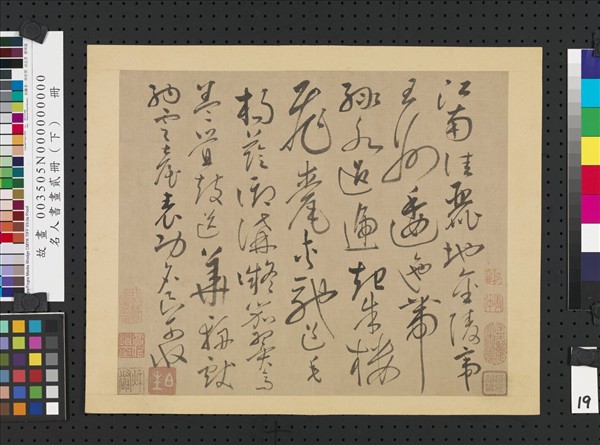 江南佳麗地金陵帝
王州逶迤帶
綠水迢遞起朱樓
飛甍夾馳道垂
楊蔭御溝凝笳翼高
蓋疊鼓送華輈獻
納雲臺表功名良可收
故畫 003505N000000000 冊
名人書畫貳冊（下）
19